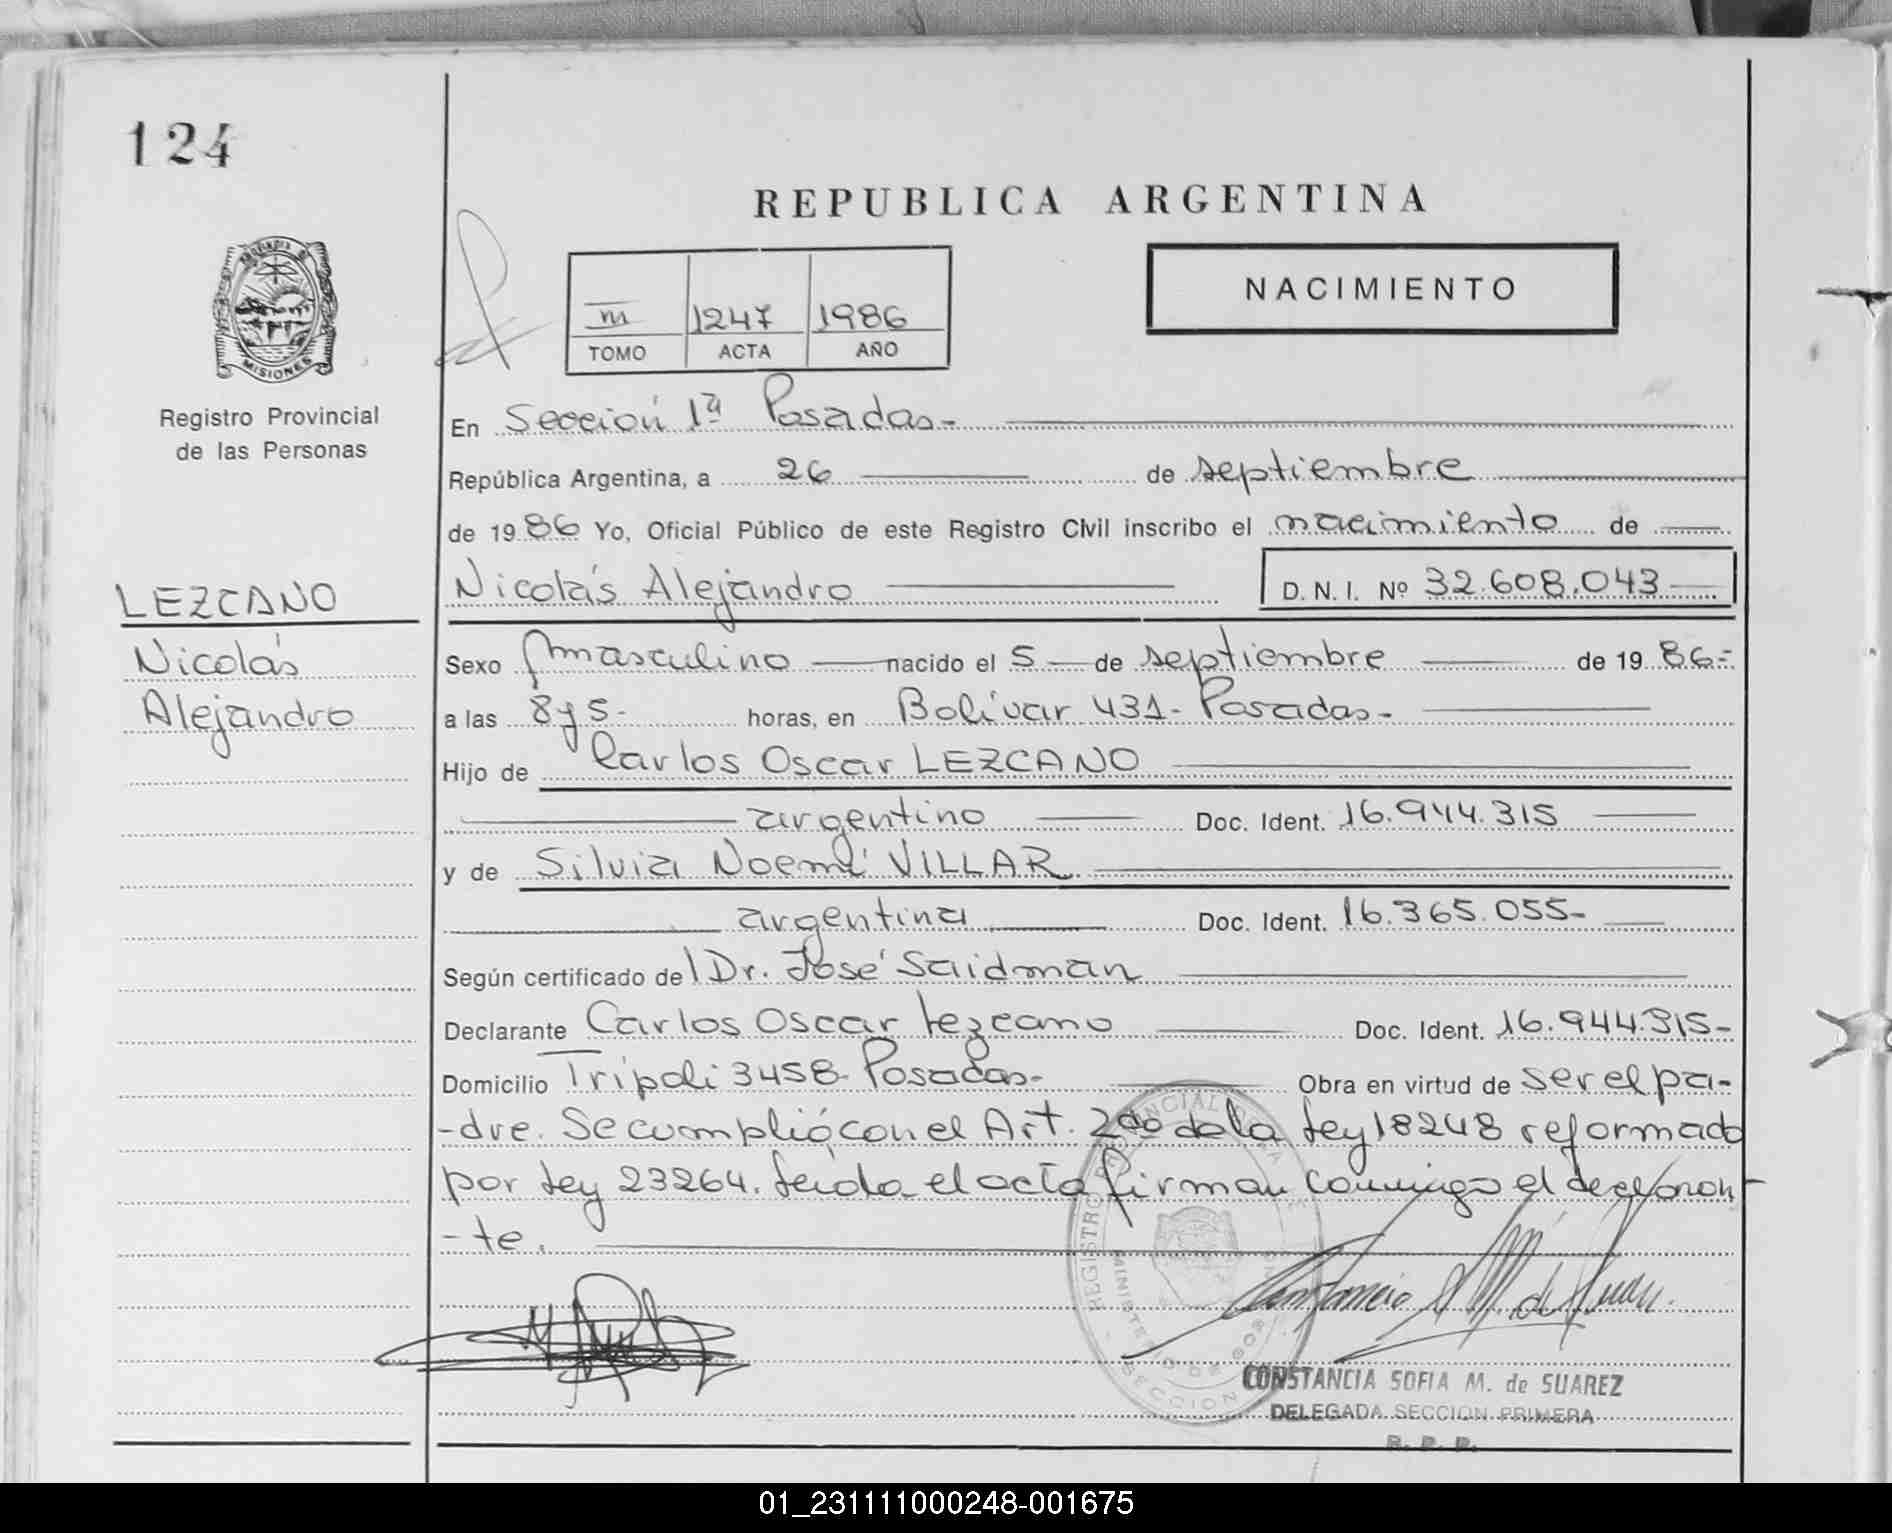 124
REPUBLICA ARGENTINA
PROVINCIA DE
MISIONES
Registro Provincial
de las Personas
III 1247 1986
TOMO ACTA AÑO
NACIMIENTO
En Sección 1ª Posadas-
República Argentina, a 26 de septiembre
de 1986 Yo, Oficial Público de este Registro Civil inscribo el nacimiento de
LEZCANO
Nicolás
Alejandro
Nicolás Alejandro D. N. I. Nº 32.608.043
Sexo masculino nacido el 5 de septiembre de 1986.-
a las 8 y 5- horas, en Bolívar 431- Posadas-
Hijo de Carlos Oscar LEZCANO
argentino Doc. Ident. 16.944.315
y de Silvia Noemí VILLAR
argentina Doc. Ident. 16.365.055-
Según certificado de Dr. José Saidman
Declarante Carlos Oscar Lezcano Doc. Ident. 16.944.315-
Domicilio Tripoli 3458- Posadas- Obra en virtud de ser el pa-
-dre. Se cumplió con el Art. 2do de la Ley 18248 reformado
por Ley 23264. Leída el acta firman conmigo el declaran-
-te.
REGISTRO PROVINCIAL
MINISTERIO DE GOB
SECCION
Constancia S M. de Suarez
CONSTANCIA SOFIA M. de SUAREZ
DELEGADA SECCION PRIMERA
R. P. P.
01_231111000248-001675